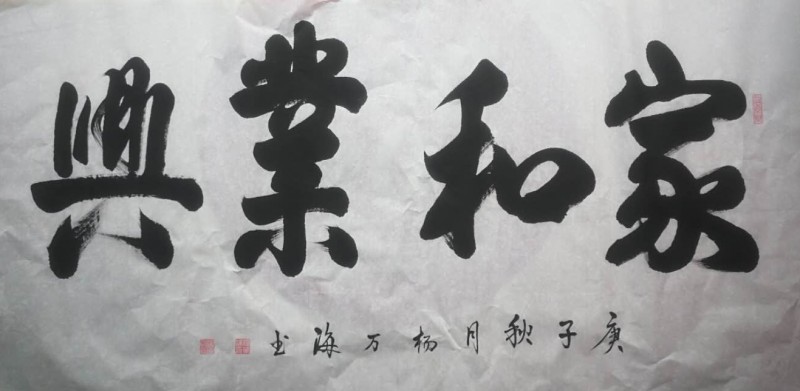 家和業興
庚子秋月杨万海书